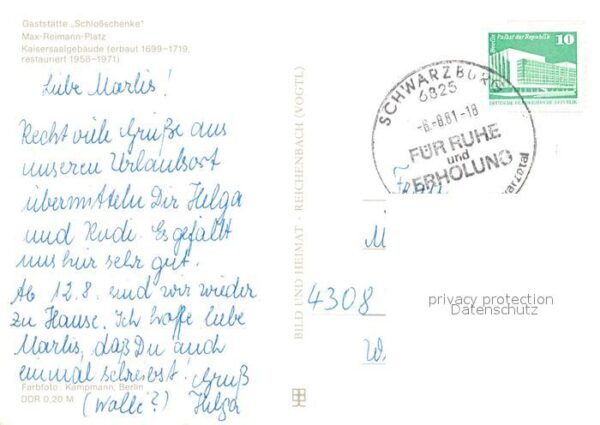 Gaststätte „Schloßschenke"
Max-Reimann-Platz
Kaisersaalgebäude (erbaut 1699–1719,
restauriert 1958–1971)
Liebe Marlis!
Recht viele Grüße aus
unserem Urlaubsort
übermitteln Dir Helga
und Rudi. Es gefällt
uns hier sehr gut.
Ab 12.8. sind wir wieder
zu Hause. Ich hoffe liebe
Marlis, daß Du auch
einmal schreibst! Gruß
(Wolle?) Helga
Farbfoto: Kampmann, Berlin
DDR 0,20 M
BILD UND HEIMAT · REICHENBACH (VOGTL)
Berlin Palast der Republik
10
DEUTSCHE DEMOKRATISCHE REPUBLIK
SCHWARZBURG
6825
-6.-8.81-18
FÜR RUHE
und
ERHOLUNG
warzatal
M
4308
W
privacy protection
Datenschutz